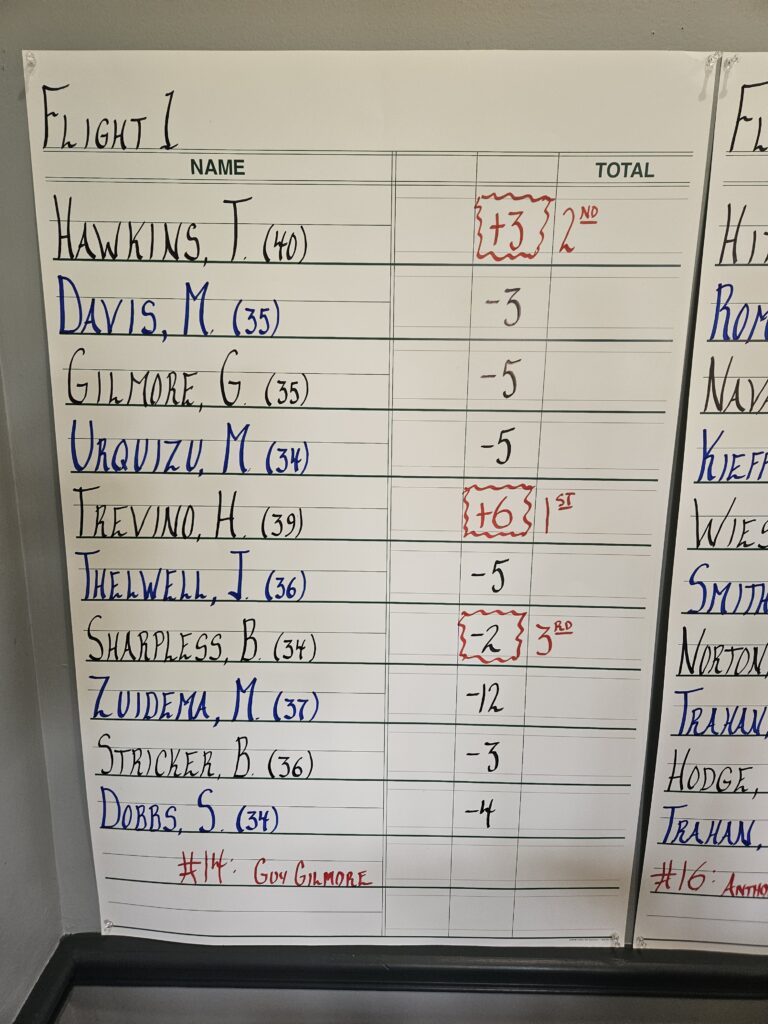 FLIGHT 1
NAME TOTAL
HAWKINS, T. (40) +3 2ND
DAVIS, M. (35) -3
GILMORE, G. (35) -5
URQUIZU, M. (34) -5
TREVINO, H. (39) +6 1ST
THELWELL, J. (36) -5
SHARPLESS, B. (34) -2 3RD
ZUIDEMA, M. (37) -12
STRICKER, B. (36) -3
DOBBS, S. (34) -4
#14: GUY GILMORE
SMITH
NORTON,
TRAHAN,
HODGE,
TRAHAN,
#16: